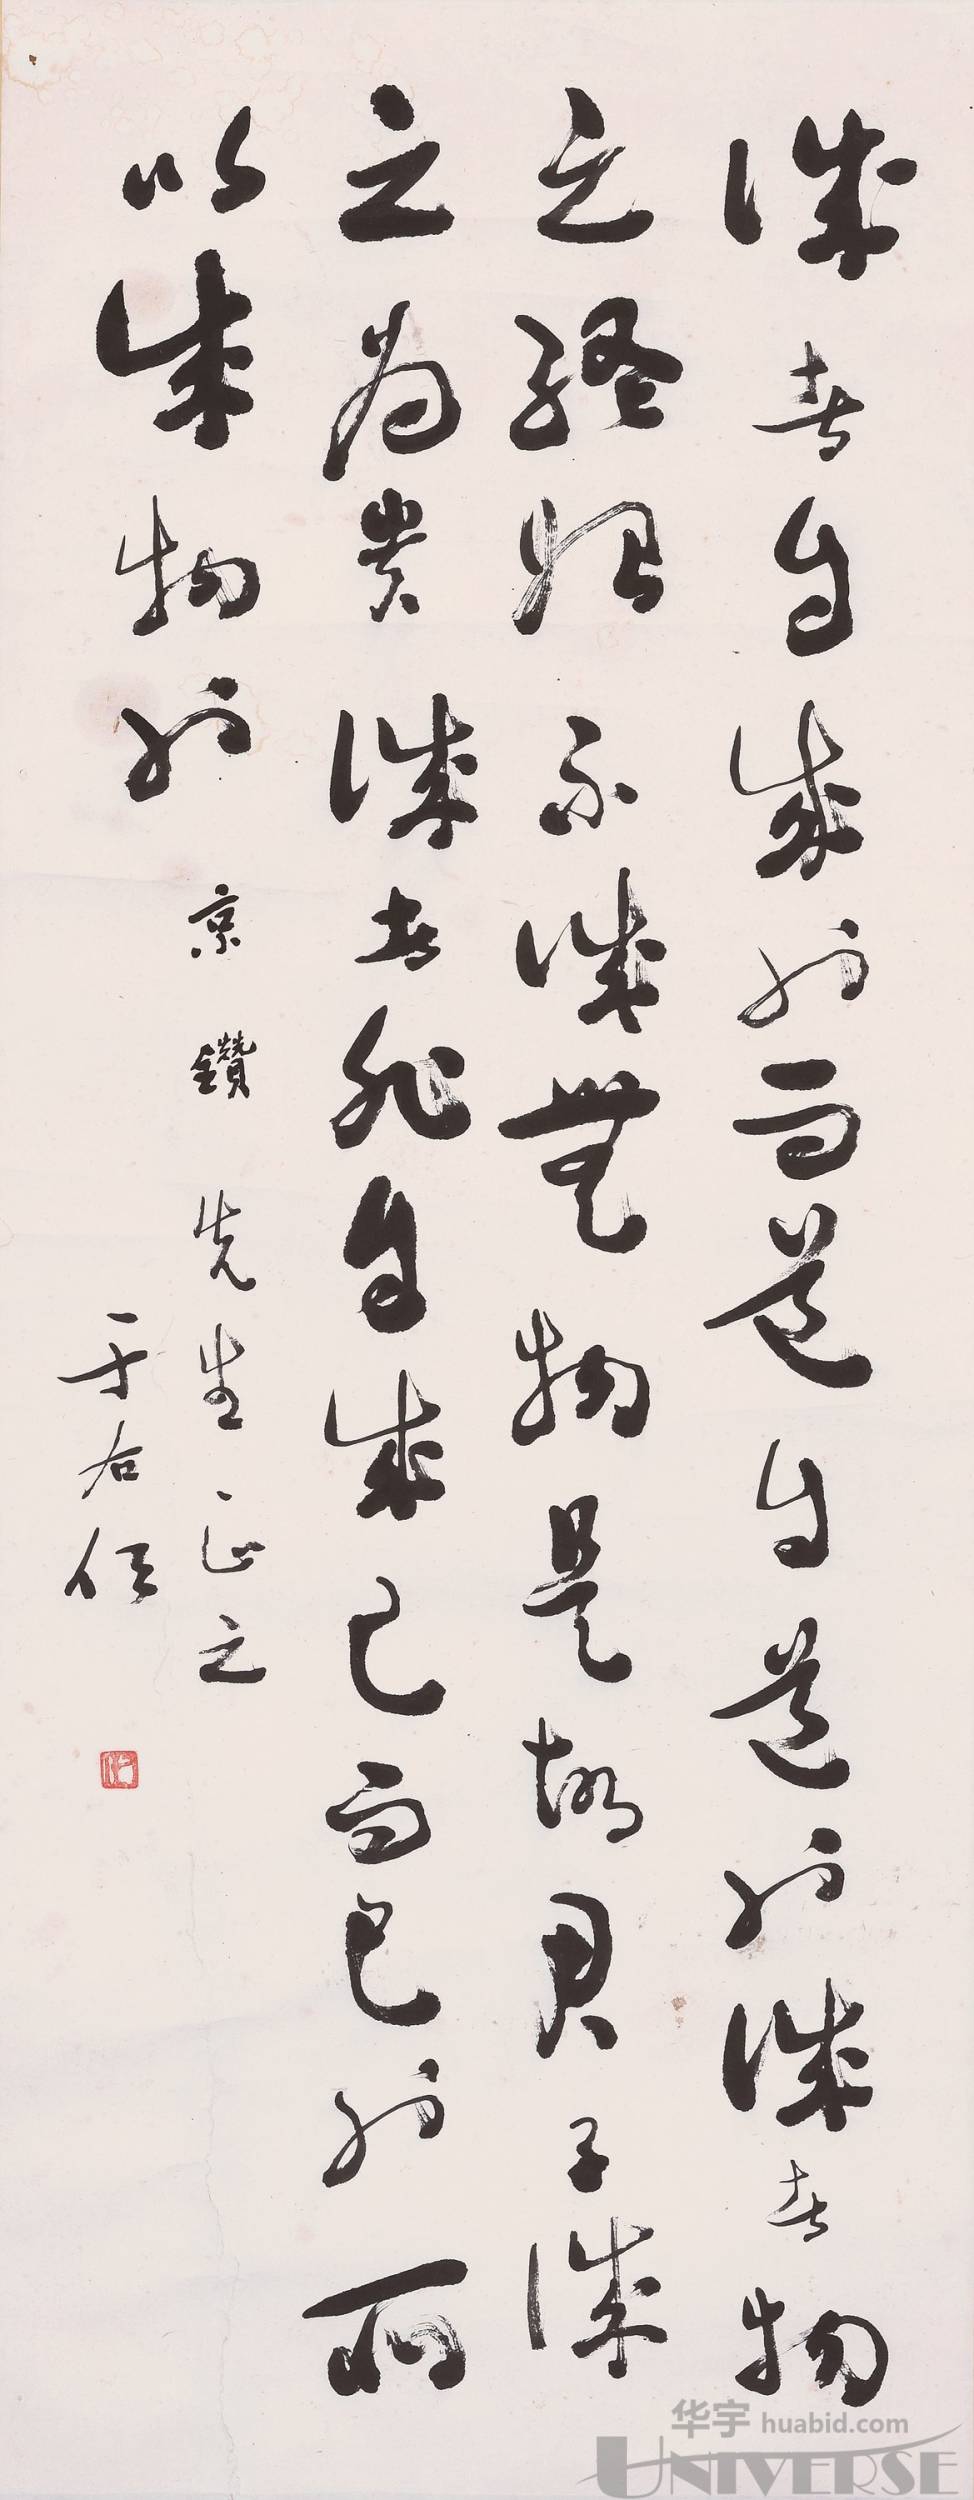 誠者自成也而道自道也誠者物
之終始不誠無物是故君子誠
之為貴誠者非自成己而已也所
以成物也
京鑽先生正之
于右任
华宇 huabid.com
UNIVERSE